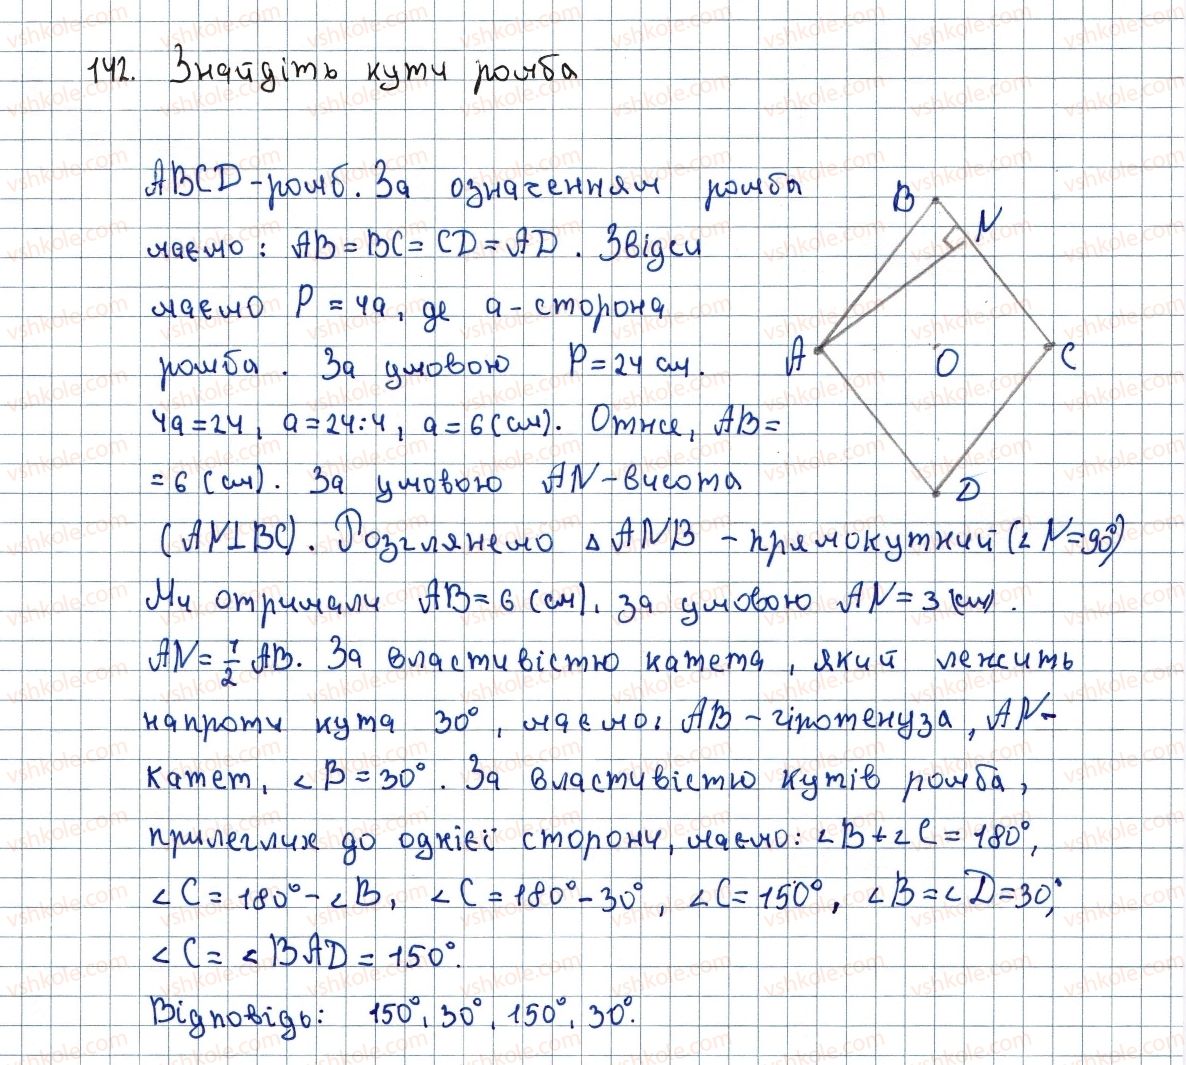 142. Знайдіть кути ромба
ABCD-ромб. За означенням ромба
маємо: AB=BC=CD=AD. Звідси
маємо P=4a, де a-сторона
ромба. За умовою P=24 см.
4a=24, a=24:4, a=6(см). Отже, AB=
=6(см). За умовою AN-висота
(AN⊥BC). Розглянемо △ANB - прямокутний (∠N=90°)
Ми отримали AB=6(см), за умовою AN=3(см).
AN=1/2 AB. За властивістю катета, який лежить
напроти кута 30°, маємо: AB-гіпотенуза, AN-
катет, ∠B=30°. За властивістю кутів ромба,
прилеглих до однієї сторони, маємо: ∠B+∠C=180°,
∠C=180°-∠B, ∠C=180°-30°, ∠C=150°, ∠B=∠D=30°,
∠C=∠BAD=150°.
Відповідь: 150°, 30°, 150°, 30°.
B
N
A
O
C
D
vshkole.com